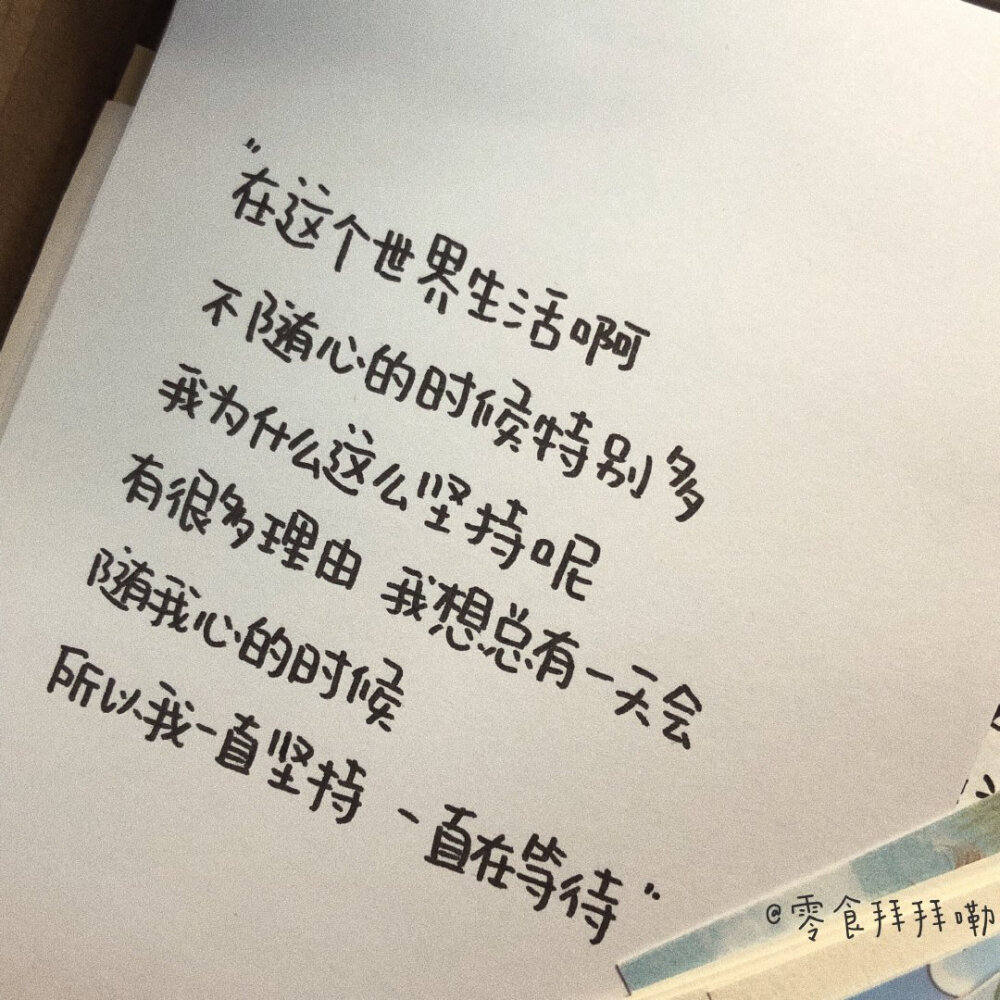 "在这个世界生活啊
不随心的时候特别多
我为什么这么坚持呢
有很多理由 我想总有一天会
随我心的时候
所以我一直坚持 一直在等待"
@零食拜拜嘞